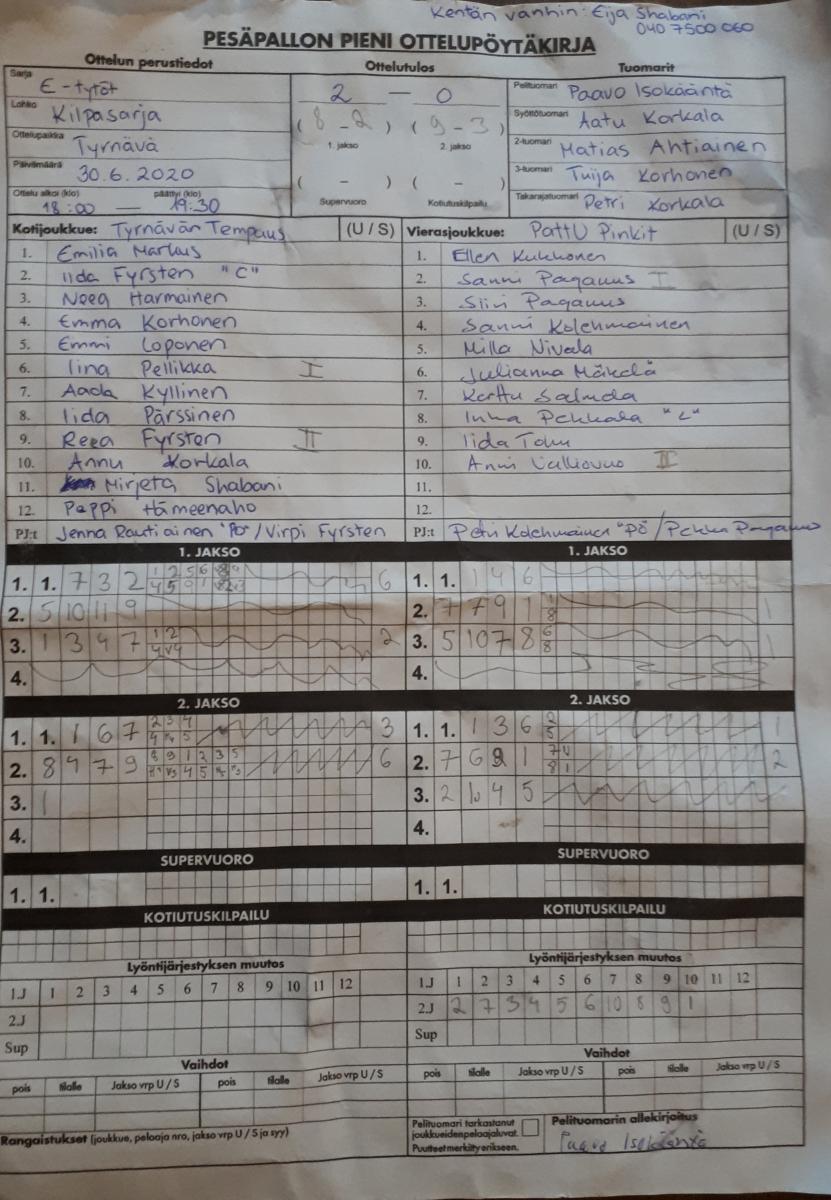 Kentän vanhin: Eija Shabani
040 7500 060
PESÄPALLON PIENI OTTELUPÖYTÄKIRJA
Ottelun perustiedot Ottelutulos Tuomarit
Sarja E-tytöt
Lohko Kilpasarja
Ottelupaikka Tyrnävä
Päivämäärä 30.6.2020
Ottelu alkoi (klo) päättyi (klo)
18:00 — 19:30
2 — 0
(8 - 2) (9 - 3)
1. jakso 2. jakso
( - ) ( - )
Supervuoro Kotiutuskilpailu
Pelituomari Paavo Isokääntä
Syöttötuomari Aatu Korkala
2-tuomari Matias Ahtiainen
3-tuomari Tuija Korhonen
Takarajatuomari Petri Korkala
Kotijoukkue: Tyrnävän Tempaus (U / S)
1. Emilia Markus
2. Iida Fyrsten "C"
3. Neea Harmainen
4. Emma Korhonen
5. Emmi Loponen
6. Iina Pellikka I
7. Aada Kyllinen
8. Iida Pärssinen
9. Reea Fyrsten II
10. Annu Korkala
11. Mirjeta Shabani
12. Peppi Hämeenaho
PJ:t Jenna Rautiainen "PO" / Virpi Fyrsten
Vierasjoukkue: PattU Pinkit (U / S)
1. Ellen Kukkonen
2. Sanni Paganus I
3. Siiri Paganus
4. Sanni Kolehmainen
5. Milla Nivala
6. Julianna Mäkelä
7. Kerttu
8. Inka Pekkala "C"
9. Iida
10. Anni II
11.
12.
PJ:t Petri Kolehmainen "PÖ" / Pekka Paganus
1. JAKSO
1. 1. 7 3 2 6
2. 5 10 11 9
3. 1 3 4 7 2
4.
1. JAKSO
1. 1. 1 4 6
2. 7 7 9 1 1
3. 5 10 7 8 1
4.
2. JAKSO
1. 1. 1 6 7 3
2. 8 4 7 9 6
3. 1
4.
2. JAKSO
1. 1. 1 3 6 1
2. 7 6 1 2
3. 2 10 4 5
4.
SUPERVUORO
1. 1.
SUPERVUORO
1. 1.
KOTIUTUSKILPAILU
KOTIUTUSKILPAILU
Lyöntijärjestyksen muutos
1.J 1 2 3 4 5 6 7 8 9 10 11 12
2.J
Sup
Lyöntijärjestyksen muutos
1.J 1 2 3 4 5 6 7 8 9 10 11 12
2.J 2 7 3 4 5 6 10 8 9 1
Sup
Vaihdot
pois tilalle Jakso vrp U / S pois tilalle Jakso vrp U / S
Vaihdot
pois tilalle Jakso vrp U / S pois tilalle Jakso vrp U / S
Rangaistukset (joukkue, pelaaja nro, jakso vrp U / S ja syy)
Pelituomari tarkastanut
joukkueiden pelaajaluvat.
Puutteet merkitty erikseen.
Pelituomarin allekirjoitus
Paavo Isokääntä